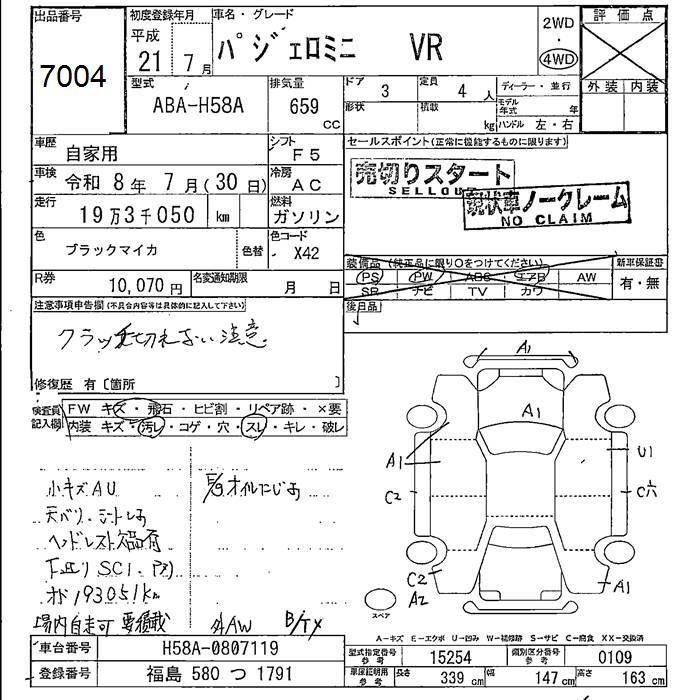 出品番号 初度登録年月 車名・グレード 2WD ・ 4WD 評価点
7004 平成 21 7月 パジェロミニ VR
型式 ABA-H58A 排気量 659 CC ドア 3 定員 4 人 ディーラー・並行 外装 内装
形状 積載 kg モデル年式 年 ハンドル 左・右
車歴 自家用 シフト F5 セールスポイント(正常に機能するものに限ります)
車検 令和 8年 7月(30日) 冷房 AC 売切りスタート SELLOUT
走行 19万3千050 km 燃料 ガソリン 現状車ノークレーム NO CLAIM
色 ブラックマイカ 色替 色コード X42
装備品(純正品に限り○をつけてください) 新車保証書
PS PW ABS エアB AW 有・無
SR ナビ TV カワ
R券 10,070円 名変通知期限 月 日
後日品
注意事項申告欄(不具合内容等は具体的に記入して下さい)
クラッチ切れない注意
修復歴 有〔箇所 〕
検査員記入欄 FW キズ・飛石・ヒビ割・リペア跡・×要
内装 キズ・汚レ・コゲ・穴・スレ・キレ・破レ
小キズAU E/gオイルにじみ
天バリ、シートし
ヘッドレスト
下廻りSC1
オド193051km
場内自走可 要積載 外AW B/TX
A1
A1
A1 U1
C2 C穴
C2 A1
A2
スペア
A-キズ E-エクボ U-凹み W-補修跡 S-サビ C-腐食 XX-交換済
車台番号 H58A-0807119 型式指定番号 参考 15254 類別区分番号 参考 0109
登録番号 福島 580 つ 1791 車庫証明用 参考 長さ 339 cm 幅 147 cm 高さ 163 cm